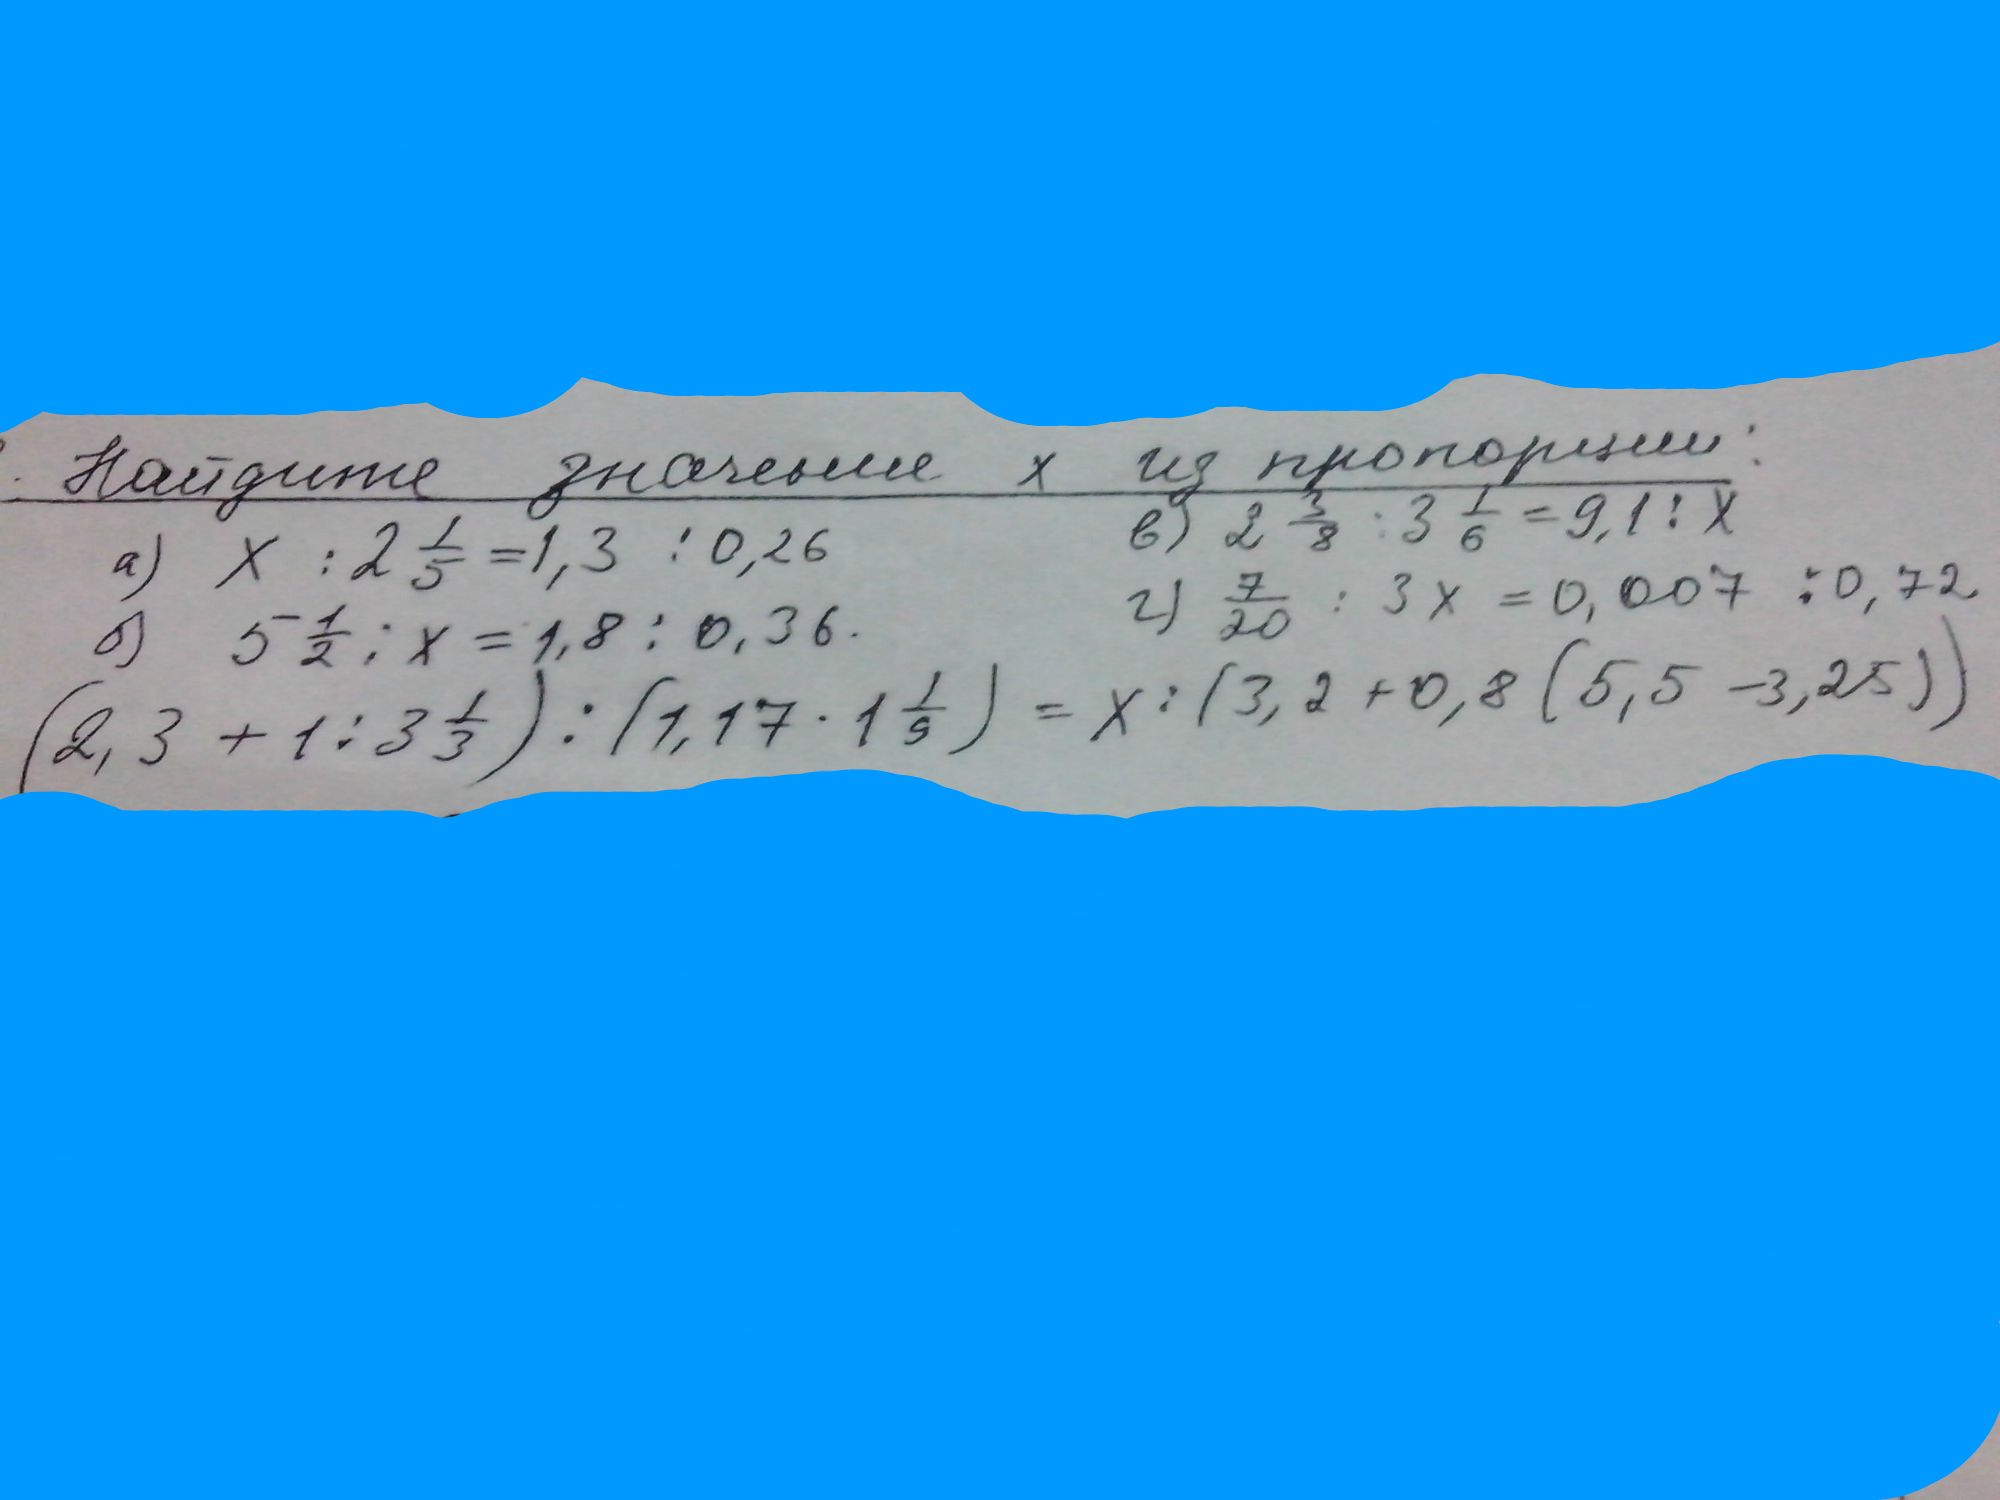 Найдите значение x из пропорции:
а) x : 2 1/5 = 1,3 : 0,26
б) 5 1/2 : x = 1,8 : 0,36.
в) 2 3/8 : 3 1/6 = 9,1 : x
г) 7/20 : 3x = 0,007 : 0,72
(2,3 + 1 : 3 1/3) : (1,17 · 1 1/9) = x : (3,2 + 0,8 (5,5 - 3,25))